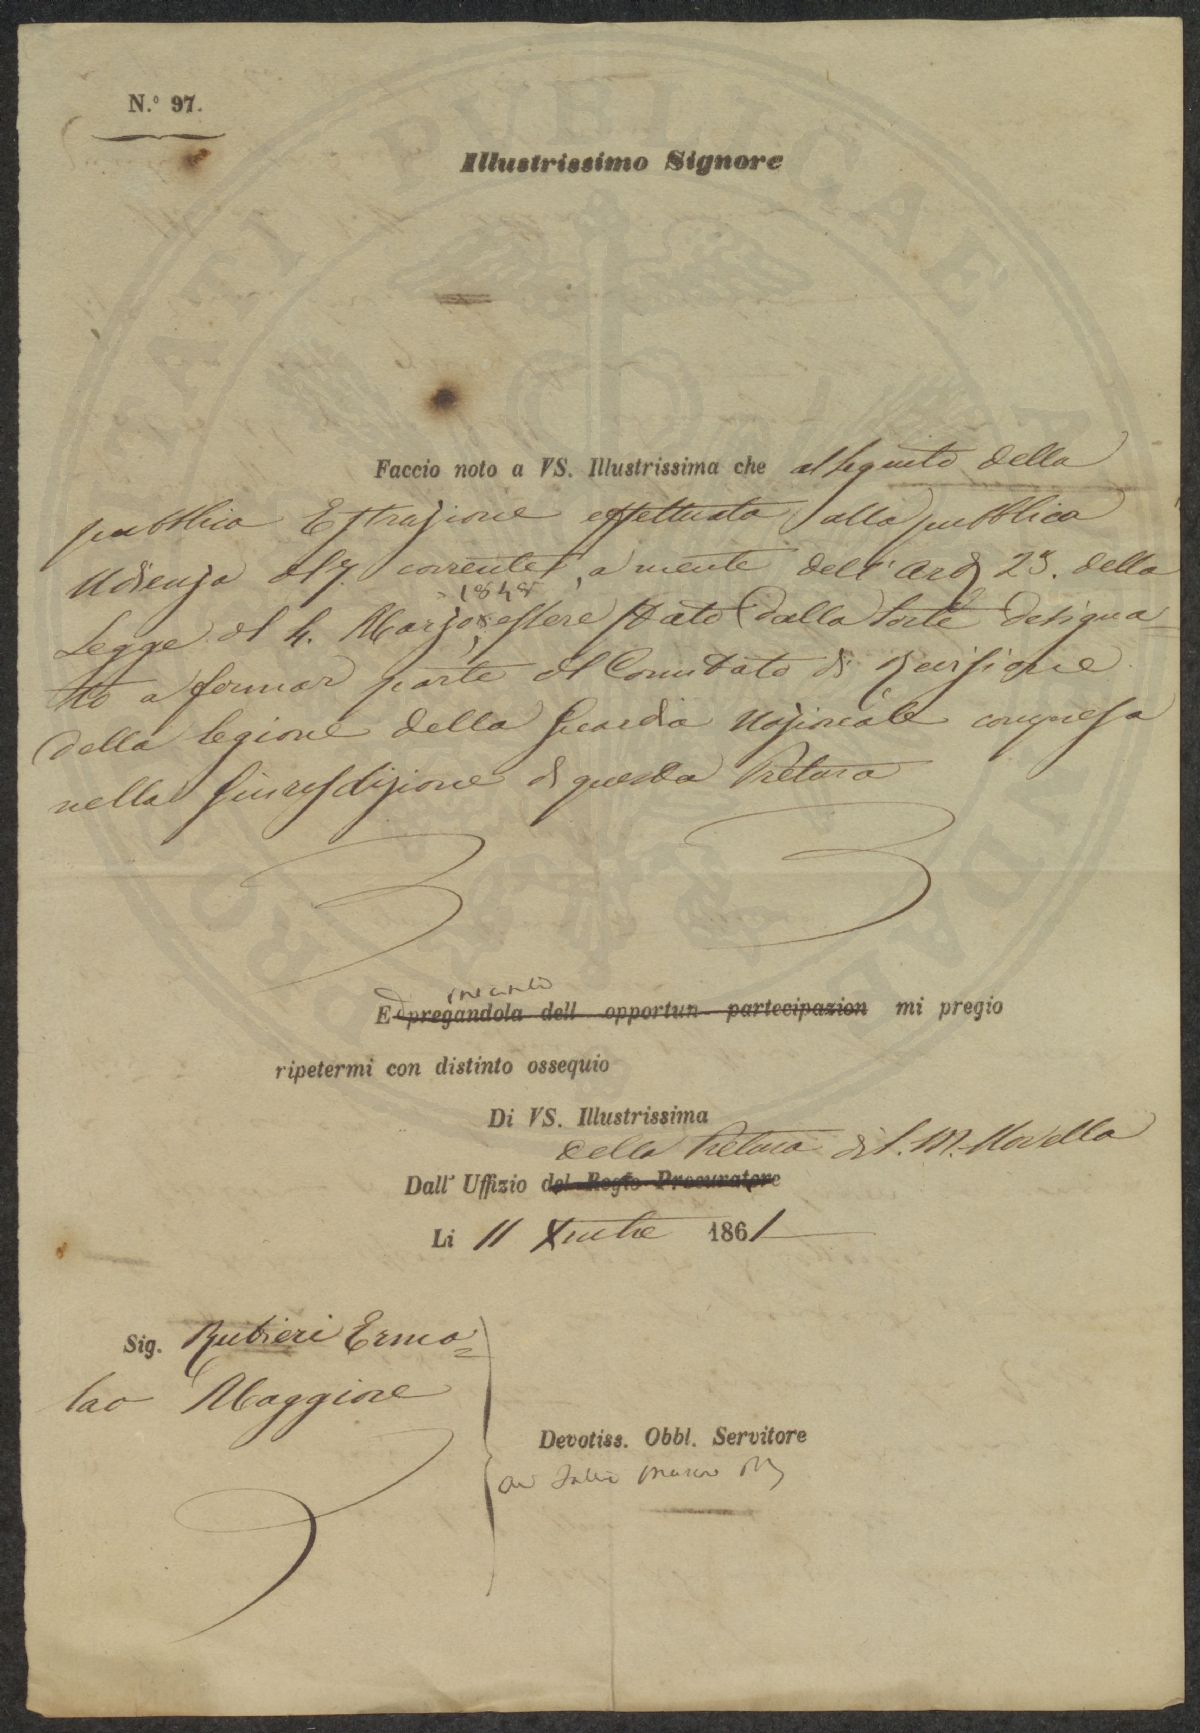 N.° 97.
Illustrissimo Signore
Faccio noto a VS. Illustrissima che al seguito della
pubblica Estrazione effettuata alla pubblica
Udienza del 7. corrente, a mente dell'Art. 25. della
1848
Legge del 4. Marzo, essere stato dalla sorte designa=
to a formar parte del Comitato di Revisione
della legione della Guardia Nazionale compresa
nella Giurisdizione di questa Pretura
intanto
Ed pregandola dell opportun partecipazion mi pregio
ripetermi con distinto ossequio
Di VS. Illustrissima
della Pretura di S. M. Novella
Dall' Uffizio del Regio Procuratore
Li 11 Xmbre 1861
Sig. Rubieri Ermo=
lao Maggiore
Devotiss. Obbl. Servitore